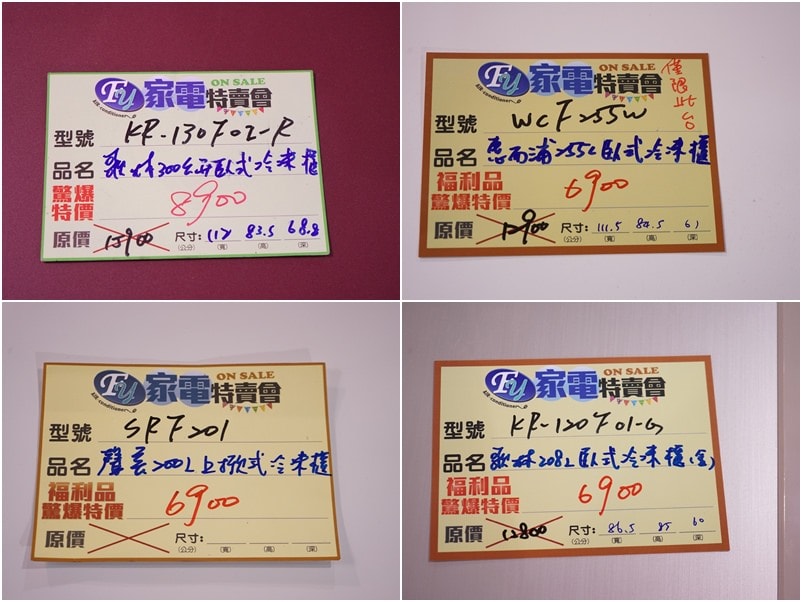 FY 家電特賣會 ON SALE
air conditioner
型號 KR-130F02-R
品名 歌林300公升臥式冷凍櫃
驚爆特價 8900
原價 13900 尺寸: 112 83.5 68.8
(公分) (寬) (高) (深)
FY 家電特賣會 ON SALE
air conditioner
僅限此台
型號 WCF255W
品名 惠而浦255L臥式冷凍櫃
福利品
驚爆特價 6900
原價 12900 尺寸: 111.5 84.5 61
(公分) (寬) (高) (深)
FY 家電特賣會 ON SALE
air conditioner
型號 SRF201
品名 聲寶200L上掀式冷凍櫃
福利品
驚爆特價 6900
原價 尺寸:
(公分) (寬) (高) (深)
FY 家電特賣會 ON SALE
air conditioner
型號 KR-120F01-G
品名 歌林208L臥式冷凍櫃(金)
福利品
驚爆特價 6900
原價 12800 尺寸: 86.5 85 60
(公分) (寬) (高) (深)